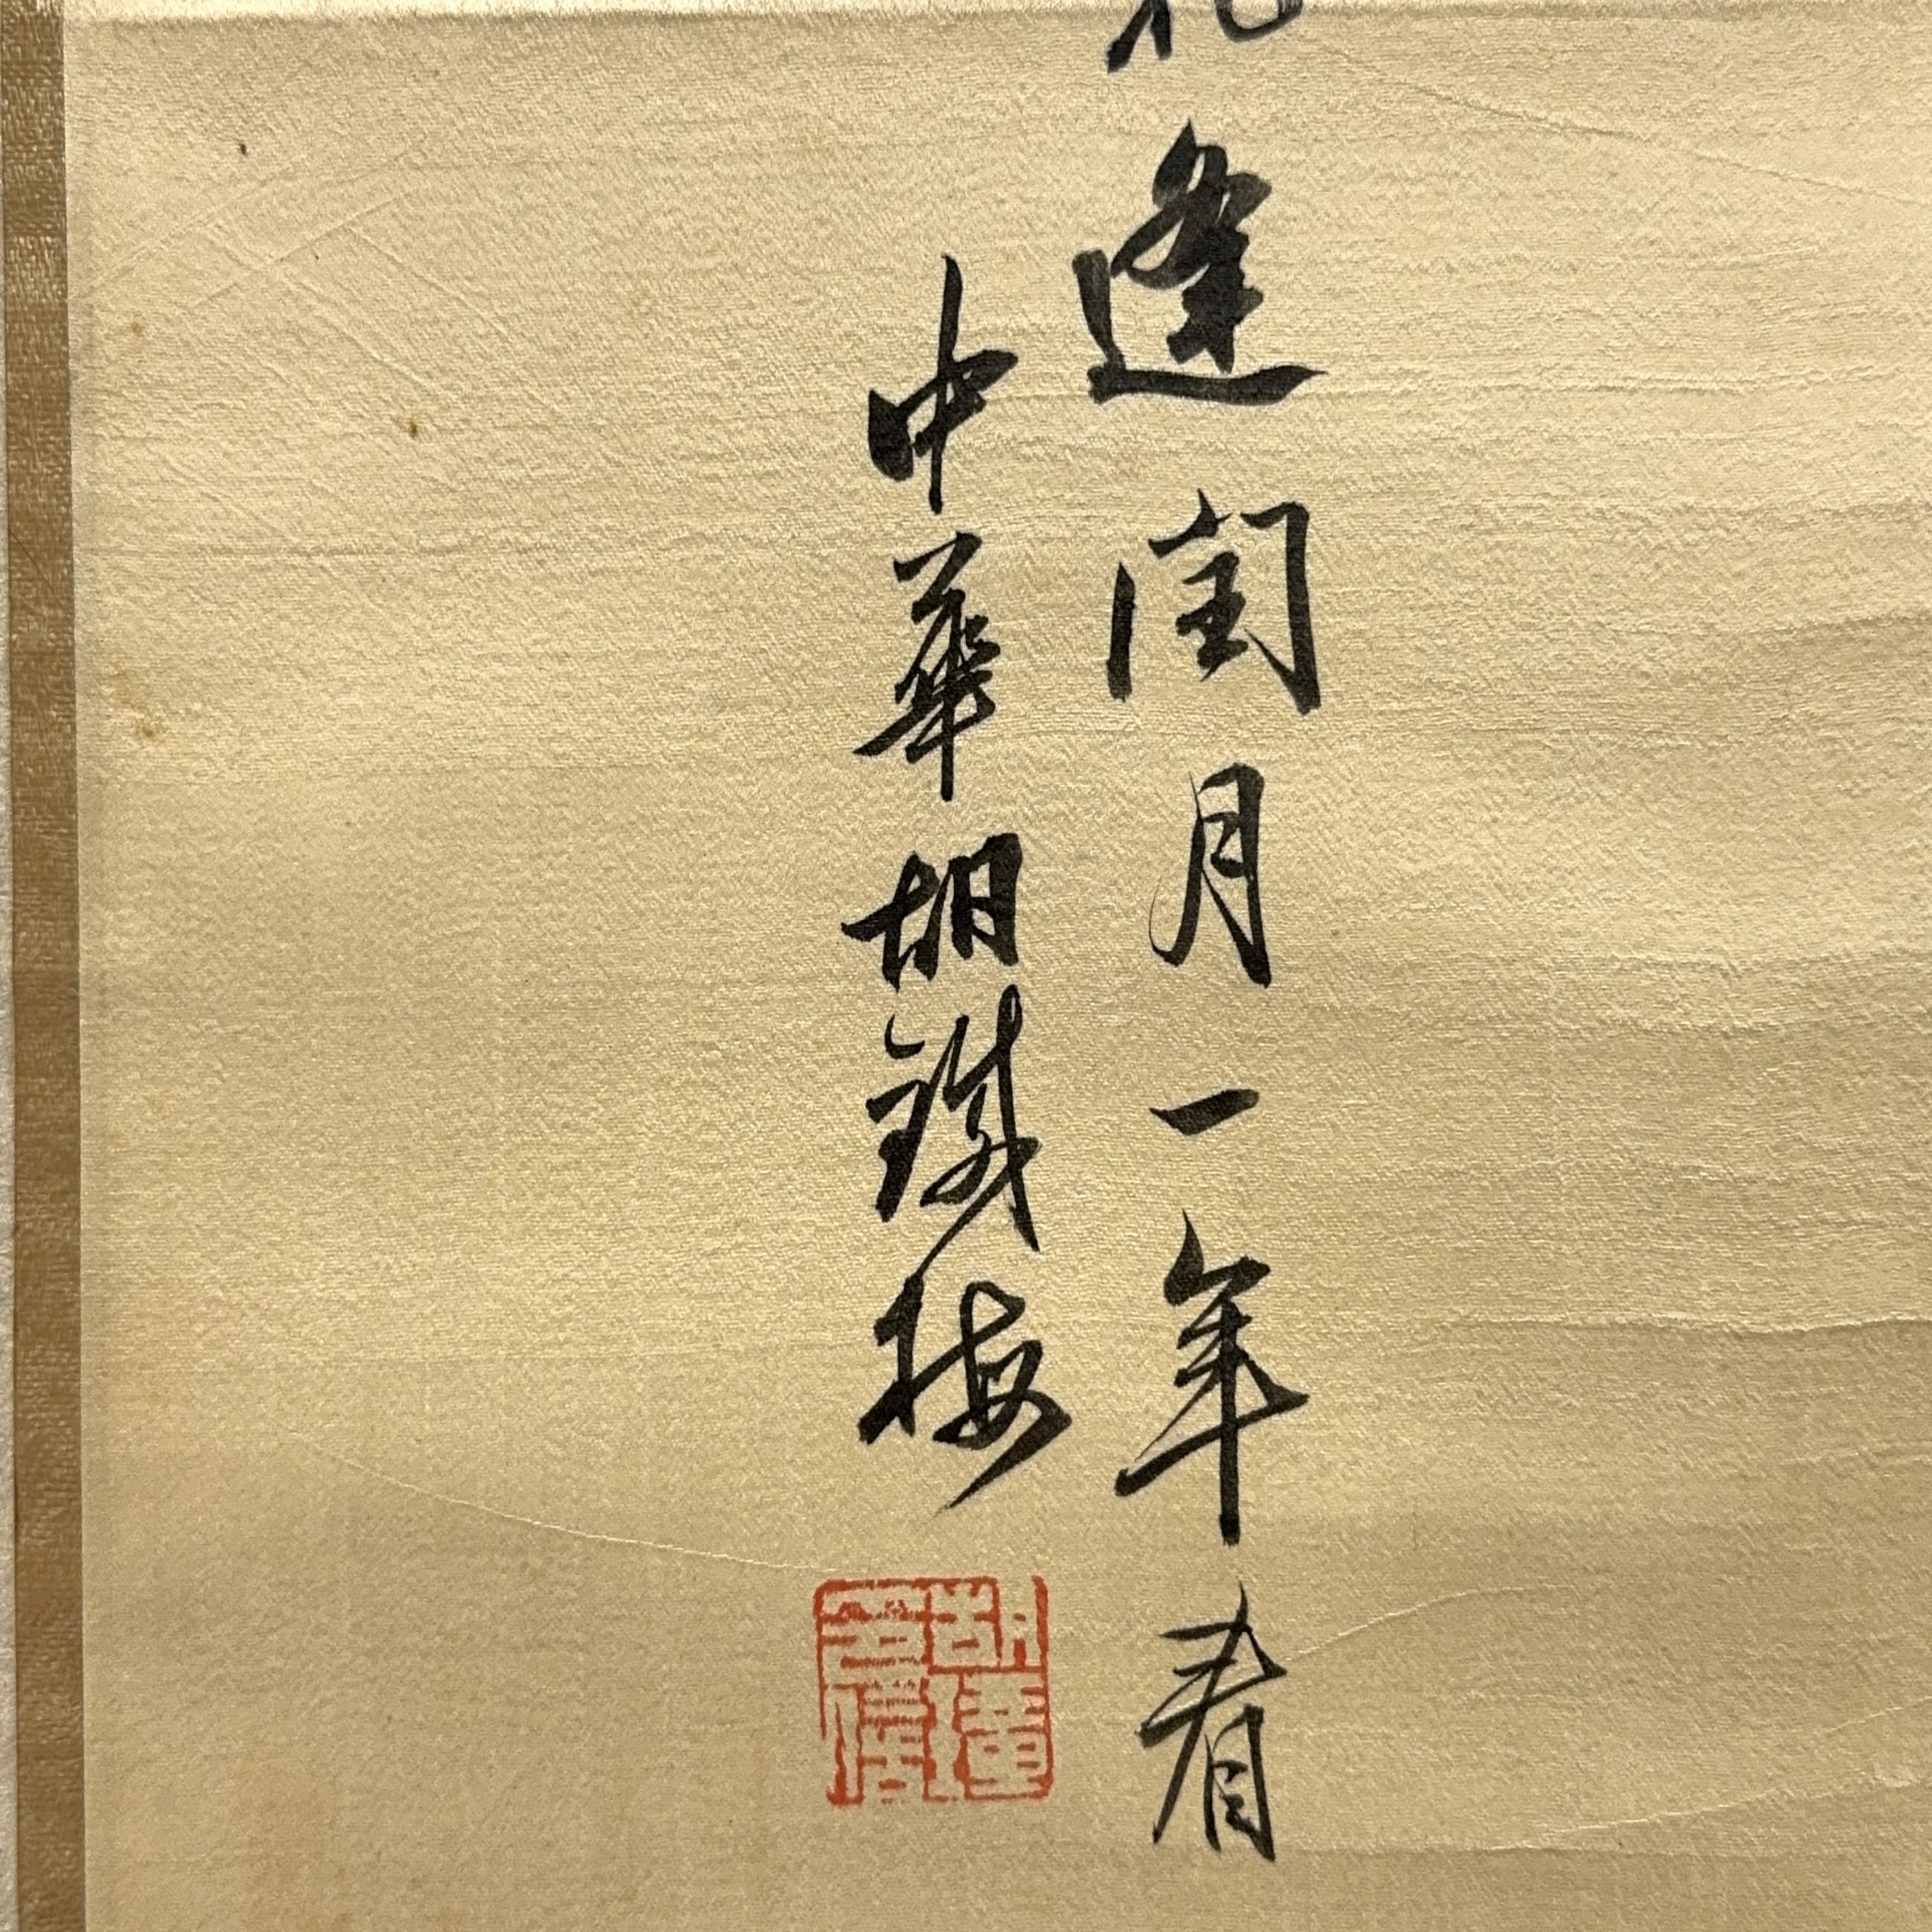 逢閏月一年看
中華胡鐵梅